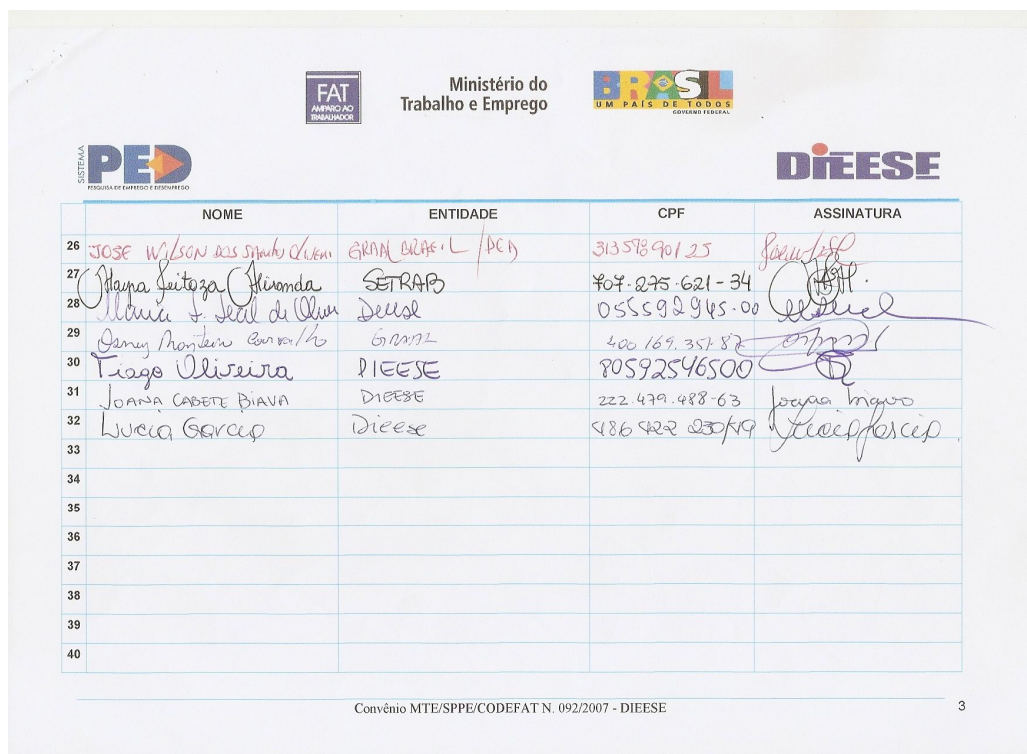 FAT
AMPARO AO
TRABALHADOR
Ministério do
Trabalho e Emprego
BRASIL
UM PAÍS DE TODOS
GOVERNO FEDERAL
SISTEMA
PED
PESQUISA DE EMPREGO E DESEMPREGO
DIEESE
NOME ENTIDADE CPF ASSINATURA
26 JOSE WILSON DOS SANTOS GRAAL BRASIL / PED 313573901 25
27 Feitoza Miranda SETRAB 707-275-621-34
28 Maria F. Leal de Oliver Dieese 055592945-00
29 Osney Monteiro Carvalho GRAAL 400 169.351-87
30 Tiago Oliveira DIEESE 80592546500
31 JOANA CABETE BIAVA DIEESE 222.479.488-63 Joana
32 Lucia Garcia Dieese 486 422 230/49 Lucia Garcia
33
34
35
36
37
38
39
40
Convênio MTE/SPPE/CODEFAT N. 092/2007 - DIEESE
3